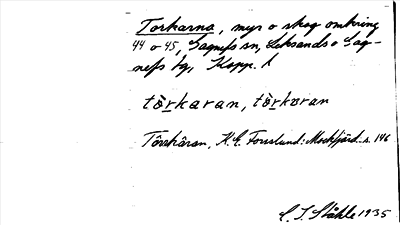 Torkarna, myr o skog omkring
44 o 45, Gagnefs sn, Leksands o Gag-
nefs tg, Kopp. l
tò̀rkaran, tò̀rkəran
Törrkåran, K. E. Forsslund: Mockfjärd s. 146
C. I. Ståhle 1935